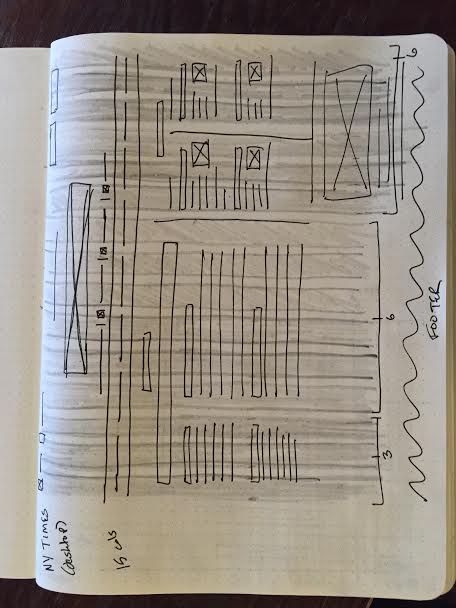 NY TIMES
(desktop)
15 cols
3
6
6
FOOTER